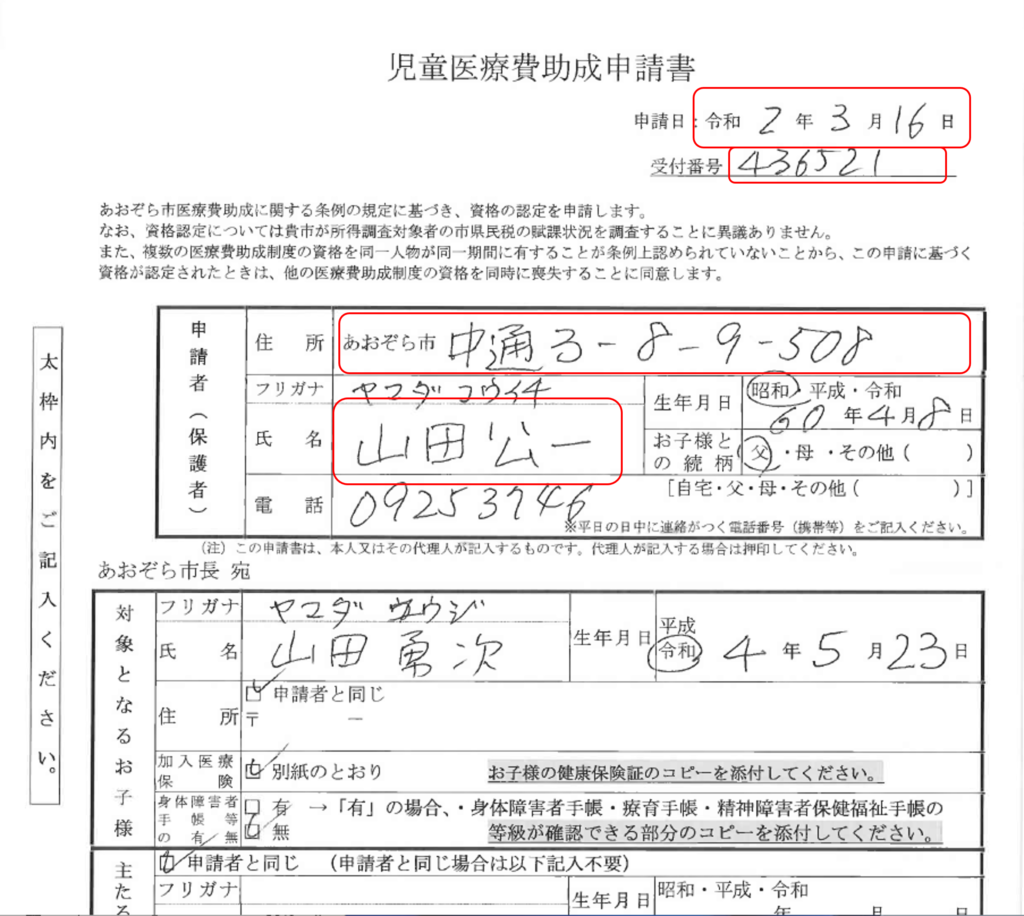 児童医療費助成申請書
申請日：令和 2 年 3 月 16 日
受付番号 436521
あおぞら市医療費助成に関する条例の規定に基づき、資格の認定を申請します。
なお、資格認定については貴市が所得調査対象者の市県民税の賦課状況を調査することに異議ありません。
また、複数の医療費助成制度の資格を同一人物が同一期間に有することが条例上認められていないことから、この申請に基づく
資格が認定されたときは、他の医療費助成制度の資格を同時に喪失することに同意します。
太枠内をご記入ください。
申請者（保護者）
住所 あおぞら市 中通3-8-9-508
フリガナ ヤマダ コウイチ
氏名 山田 公一
生年月日 昭和・平成・令和
60 年 4 月 8 日
お子様と
の続柄 父・母・その他（ ）
電話 09253746
［自宅・父・母・その他（ ）］
※平日の日中に連絡がつく電話番号（携帯等）をご記入ください。
（注）この申請書は、本人又はその代理人が記入するものです。代理人が記入する場合は押印してください。
あおぞら市長 宛
対象となるお子様
フリガナ ヤマダ ユウジ
氏名 山田 勇次
生年月日 平成
令和 4 年 5 月 23 日
住所 □ 申請者と同じ
〒 ー
加入医療
保険 □ 別紙のとおり お子様の健康保険証のコピーを添付してください。
身体障害者
手帳等
の有/無
□ 有 →「有」の場合、・身体障害者手帳・療育手帳・精神障害者保健福祉手帳の
□ 無 等級が確認できる部分のコピーを添付してください。
主たる
□ 申請者と同じ （申請者と同じ場合は以下記入不要）
フリガナ
生年月日 昭和・平成・令和
年 月 日